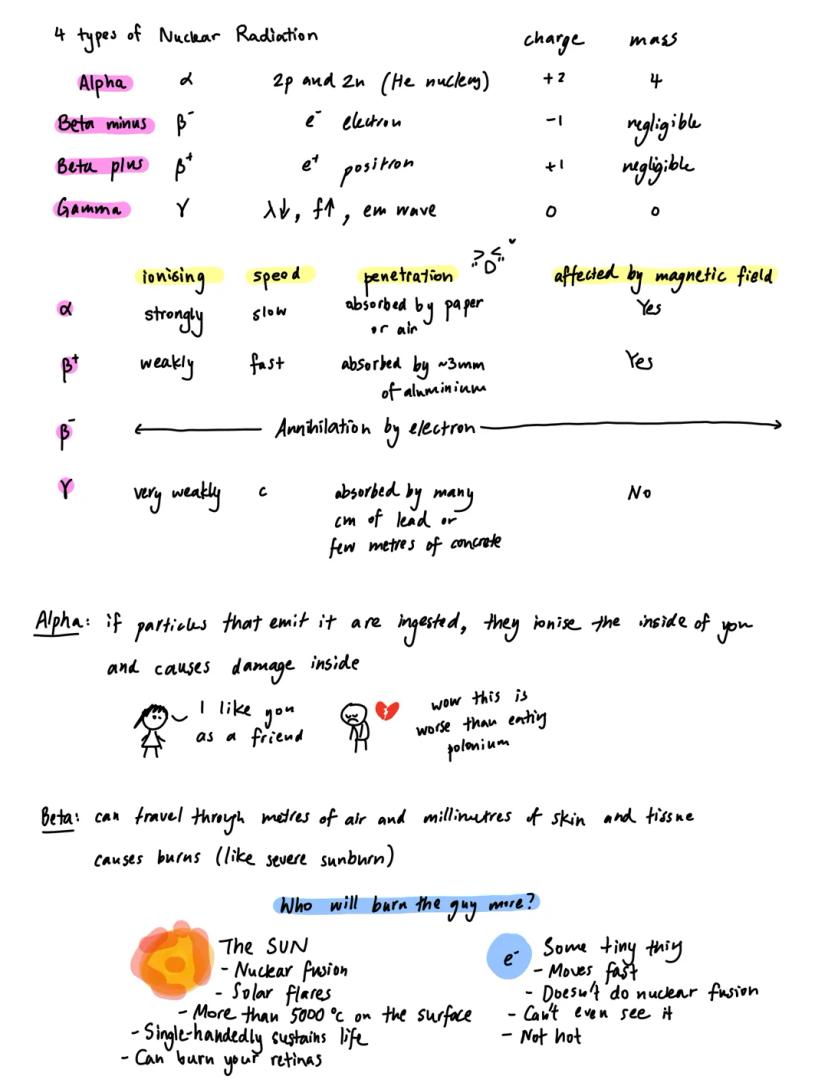 4 types of Nuclear Radiation charge mass
Alpha α 2p and 2n (He nucleus) +2 4
Beta minus β⁻ e⁻ electron -1 negligible
Beta plus β⁺ e⁺ positron +1 negligible
Gamma γ λ↓, f↑, em wave 0 0
ionising speed penetration affected by magnetic field
α strongly slow absorbed by paper Yes
or air
β⁺ weakly fast absorbed by ~3mm Yes
of aluminium
β⁻ Annihilation by electron
γ very weakly c absorbed by many No
cm of lead or
few metres of concrete
Alpha: if particles that emit it are ingested, they ionise the inside of you
and causes damage inside
I like you
as a friend
wow this is
worse than eating
polonium
Beta: can travel through metres of air and millimetres of skin and tissue
causes burns (like severe sunburn)
Who will burn the guy more?
The SUN
- Nuclear fusion
- Solar flares
- More than 5000 °c on the surface
- Single-handedly sustains life
- Can burn your retinas
e⁻ Some tiny thing
- Moves fast
- Doesn't do nuclear fusion
- Can't even see it
- Not hot